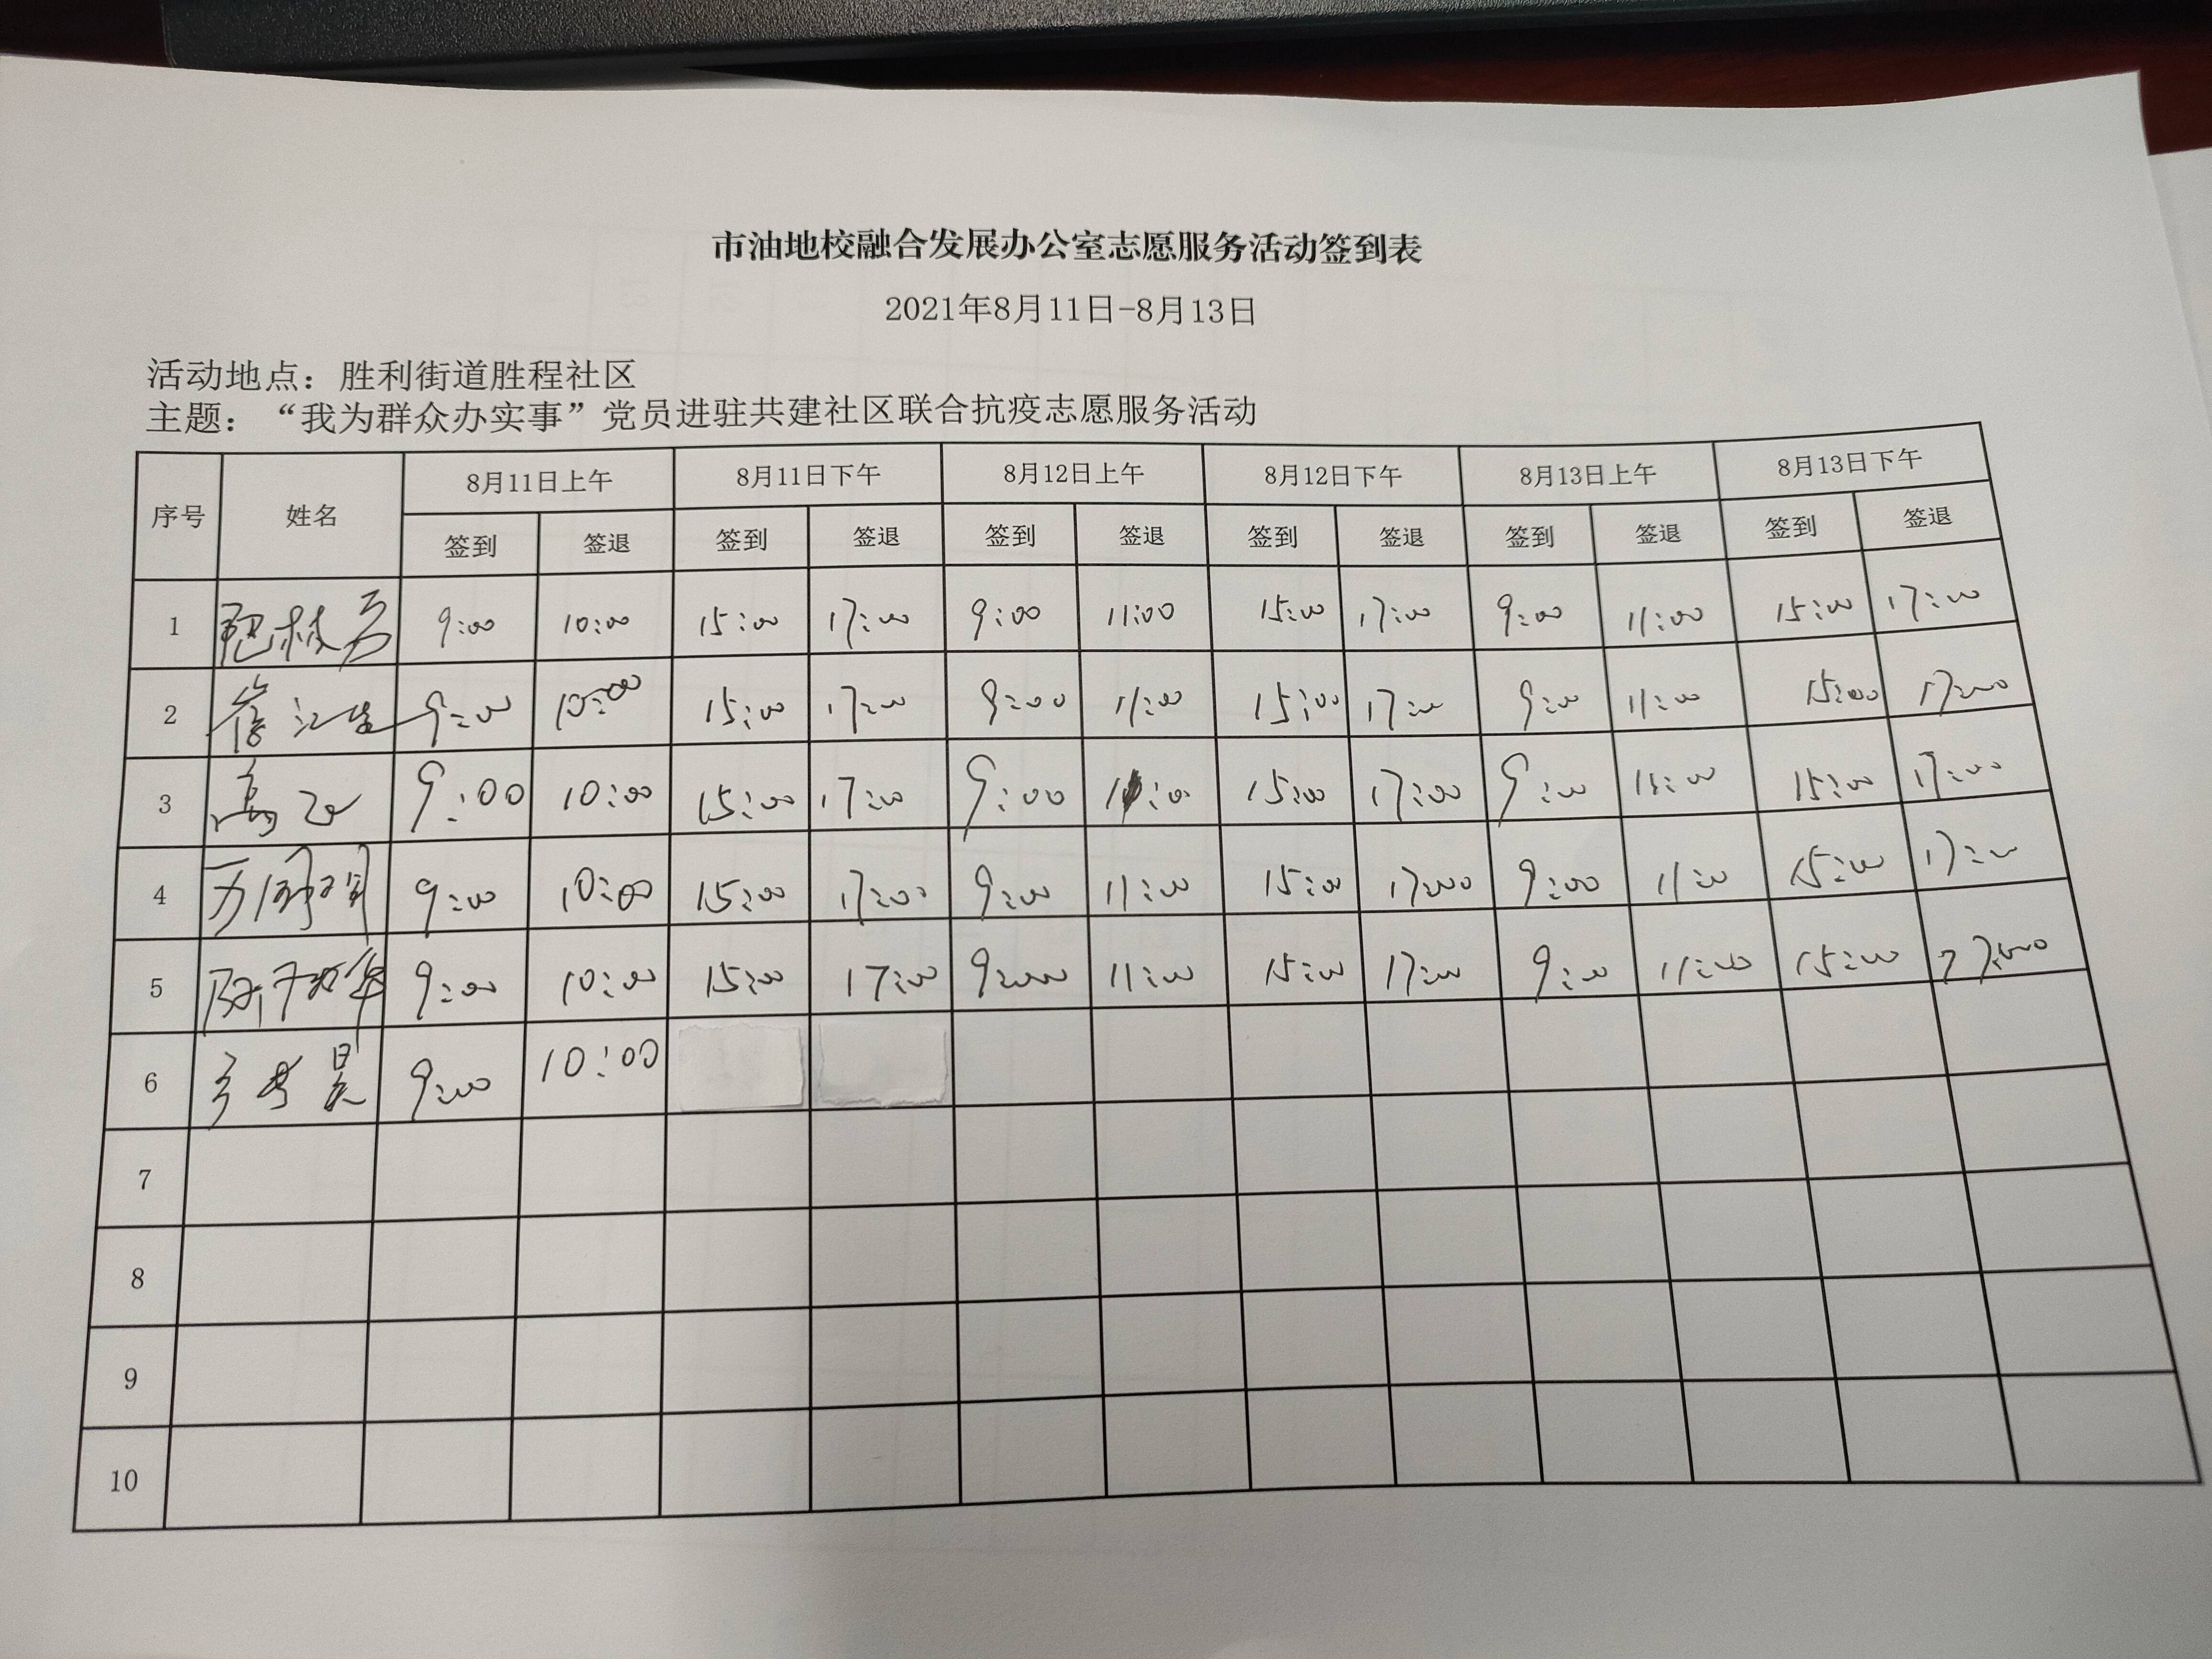 市油地校融合发展办公室志愿服务活动签到表
2021年8月11日-8月13日
活动地点：胜利街道胜程社区
主题：“我为群众办实事”党员进驻共建社区联合抗疫志愿服务活动
序号 姓名 8月11日上午 8月11日下午 8月12日上午 8月12日下午 8月13日上午 8月13日下午
签到 签退 签到 签退 签到 签退 签到 签退 签到 签退 签到 签退
1 9:00 10:00 15:00 17:00 9:00 11:00 15:00 17:00 9:00 11:00 15:00 17:00
2 9:00 10:00 15:00 17:00 9:00 11:00 15:00 17:00 9:00 11:00 15:00 17:00
3 9:00 10:00 15:00 17:00 9:00 11:00 15:00 17:00 9:00 11:00 15:00 17:00
4 9:00 10:00 15:00 17:00 9:00 11:00 15:00 17:00 9:00 11:00 15:00 17:00
5 9:00 10:00 15:00 17:00 9:00 11:00 15:00 17:00 9:00 11:00 15:00 17:00
6 9:00 10:00
7
8
9
10